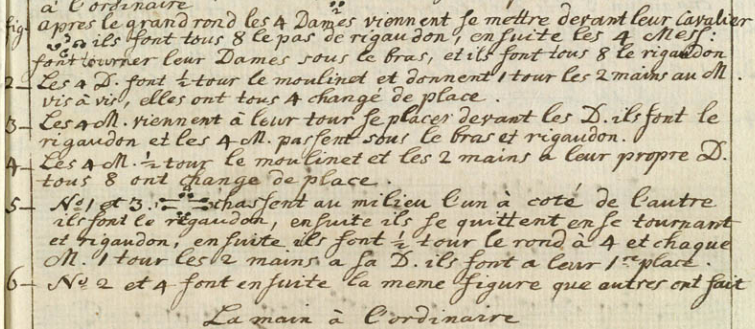 à l'ordinaire
fig: apres le grand rond les 4 Dames viennent se mettre devant leur Cavalier
ils font tous 8 le pas de rigaudon, ensuite les 4 Mess:
font tourner leur Dames sous le bras, et ils font tous 8 le rigaudon
2_ Les 4 D. font ½ tour le moulinet et donnent 1 tour les 2 mains au M.
vis à vis, elles ont tous 4 changé de place.
3_ Les 4 M. viennent à leur tour se placer devant les D. ils font le
rigaudon et les 4 M. passent sous le bras et rigaudon.
4_ Les 4 M. ½ tour le moulinet et les 2 mains a leur propre D.
tous 8 ont change de place.
5_ No. 1 et 3. chassent au milieu l'un à coté de l'autre
ils font le rigaudon, ensuite ils se quittent en se tournant
et rigaudon, ensuite ils font ½ tour le rond à 4 et chaque
M. 1 tour les 2 mains a sa D. ils font a leur 1re place.
6_ No. 2 et 4 font ensuite la meme figure que autres ont fait
La main à l'ordinaire